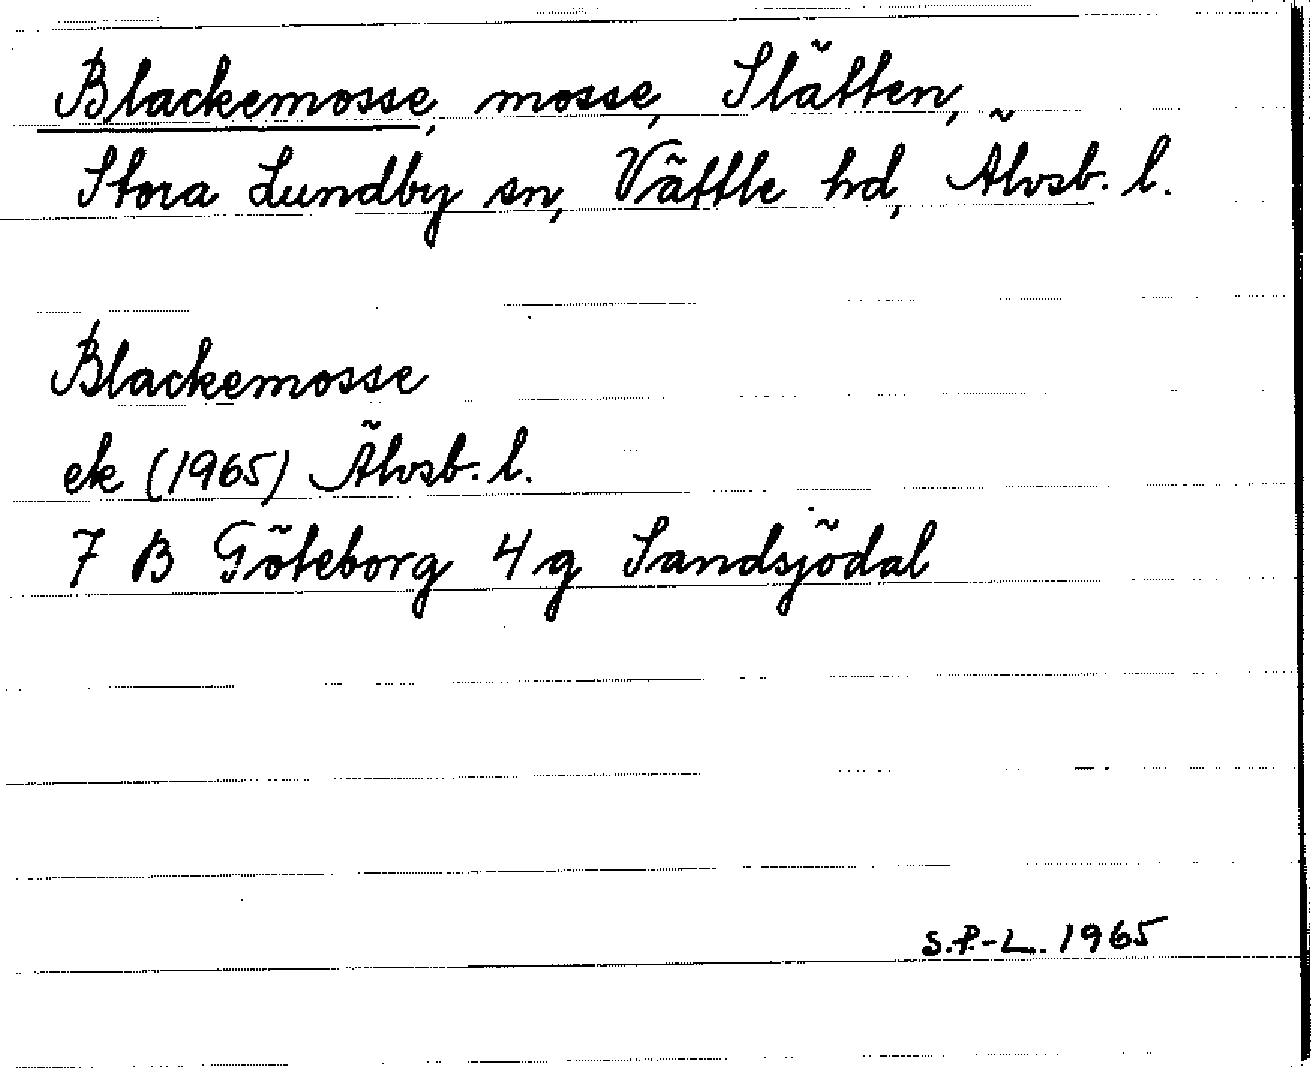 Blackemosse, mosse, Slätten,
Stora Lundby sn, Vättle hd, Älvsb. l.
Blackemosse
ek (1965) Älvsb. l.
7 B Göteborg 4 g Sandsjödal
S.P.-L. 1965